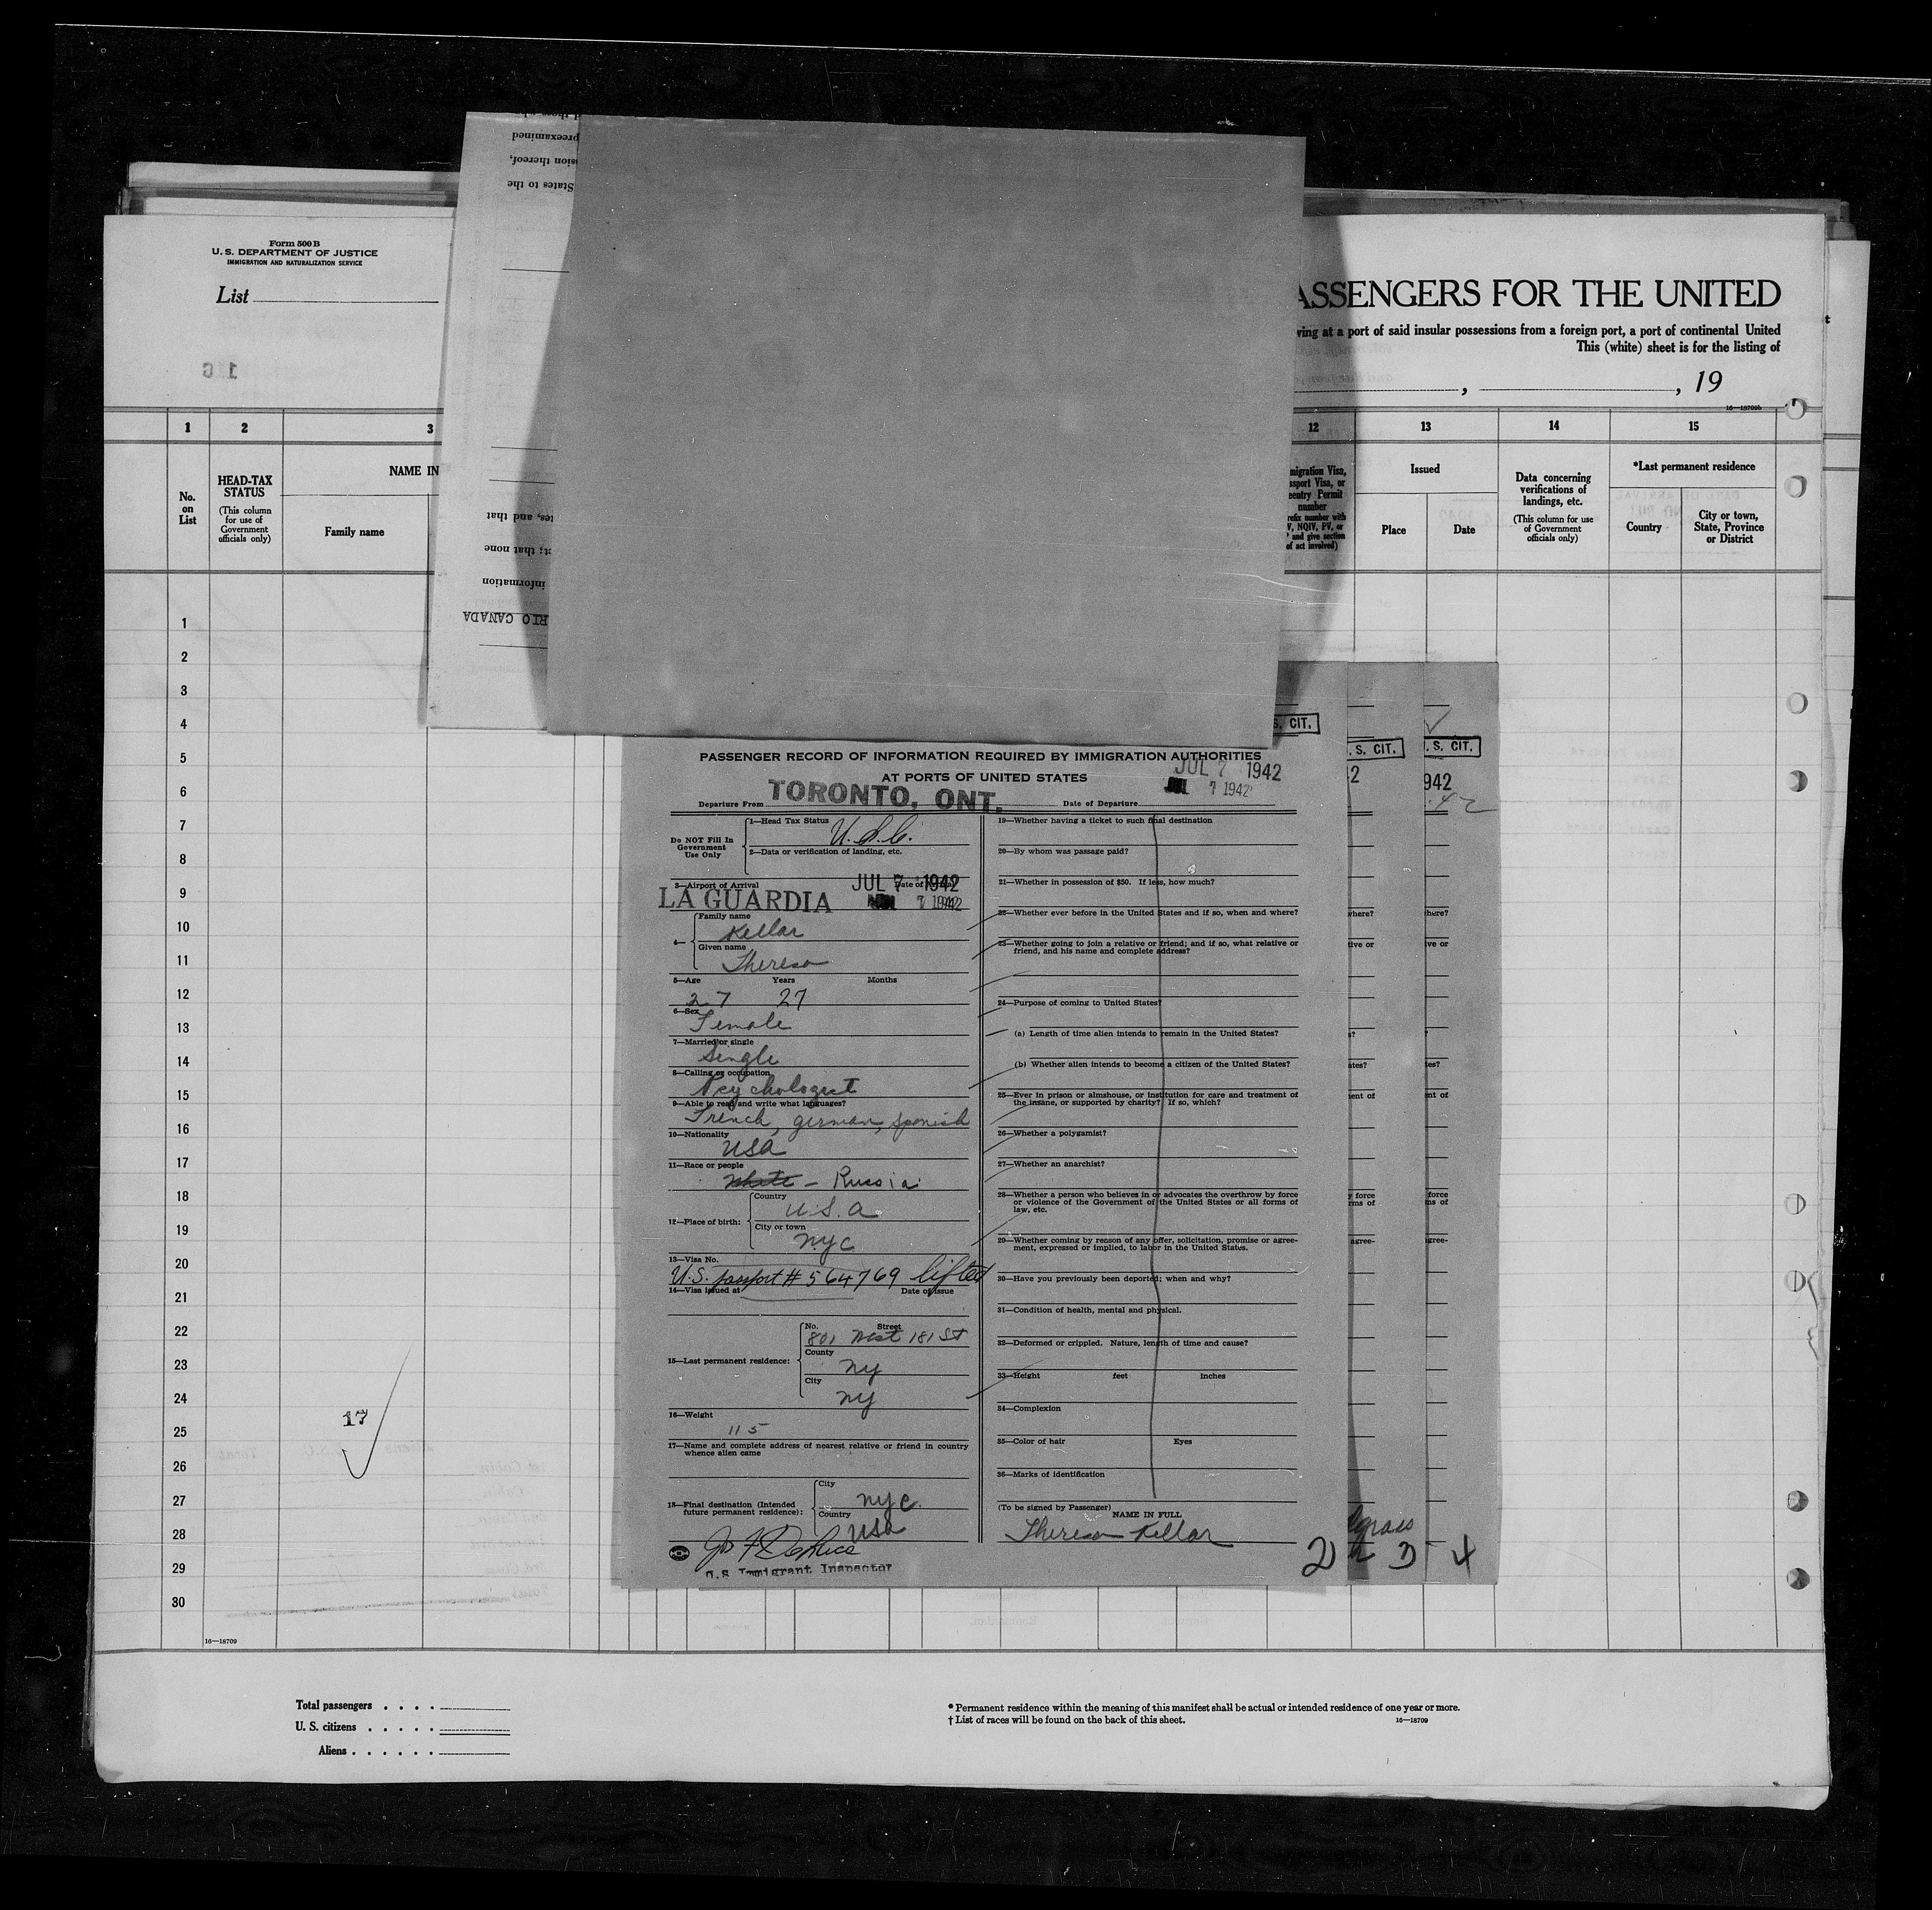 Form 500 B
U. S. DEPARTMENT OF JUSTICE
IMMIGRATION AND NATURALIZATION SERVICE
List
16
preexamined
sion thereof,
States to the
tes, and that
ct; that none
information
RIO CANADA
ASSENGERS FOR THE UNITED
ving at a port of said insular possessions from a foreign port, a port of continental United
This (white) sheet is for the listing of
, , 19
16—18709b
1 2 3 12 13 14 15
No. on List
HEAD-TAX STATUS
(This column for use of Government officials only)
NAME IN
Family name
migration Visa,
ssport Visa, or
eentry Permit
number
refix number with
V, NQIV, PV, or
and give section
of act involved)
Issued
Place Date
Data concerning verifications of landings, etc.
(This column for use of Government officials only)
*Last permanent residence
Country
City or town, State, Province or District
1
2
3
4
5
6
7
8
9
10
11
12
13
14
15
16
17
18
19
20
21
22
23
24
25
26
27
28
29
30
17
16—18709
S. CIT.
. S. CIT.
. S. CIT.
2
942
PASSENGER RECORD OF INFORMATION REQUIRED BY IMMIGRATION AUTHORITIES
AT PORTS OF UNITED STATES
JUL 7 1942
Departure From TORONTO, ONT. Date of Departure 7 1942
Do NOT Fill In Government Use Only
1—Head Tax Status U.S.C.
2—Data or verification of landing, etc.
3—Airport of Arrival Date of
LA GUARDIA JUL 7 1942
7 1942
4— Family name
Kellar
Given name
Theresa
5—Age Years Months
27 27
6—Sex
Female
7—Married or single
Single
8—Calling or occupation
Psychologist
9—Able to read and write what languages?
French, german, spanish
10—Nationality
USA
11—Race or people
White - Russia
12—Place of birth: Country
U.S.A
City or town
NYC
13—Visa No.
U.S. passport # 564769 lifted
14—Visa issued at Date of issue
15—Last permanent residence: No. Street
801 West 181 St
County
NY
City
NY
16—Weight
115
17—Name and complete address of nearest relative or friend in country
whence alien came
18—Final destination (Intended future permanent residence): City
NYC.
Country
USA
U.S. Immigrant Inspector
19—Whether having a ticket to such final destination
20—By whom was passage paid?
21—Whether in possession of $50. If less, how much?
22—Whether ever before in the United States and if so, when and where?
23—Whether going to join a relative or friend; and if so, what relative or
friend, and his name and complete address?
24—Purpose of coming to United States?
(a) Length of time alien intends to remain in the United States?
(b) Whether alien intends to become a citizen of the United States?
25—Ever in prison or almshouse, or institution for care and treatment of
the insane, or supported by charity? If so, which?
26—Whether a polygamist?
27—Whether an anarchist?
28—Whether a person who believes in or advocates the overthrow by force
or violence of the Government of the United States or all forms of
law, etc.
29—Whether coming by reason of any offer, solicitation, promise or agree-
ment, expressed or implied, to labor in the United States.
30—Have you previously been deported; when and why?
31—Condition of health, mental and physical.
32—Deformed or crippled. Nature, length of time and cause?
33—Height feet inches
34—Complexion
35—Color of hair Eyes
36—Marks of identification
(To be signed by Passenger)
NAME IN FULL
Theresa Kellar
2 3 4
Total passengers . . . .
U. S. citizens . . . . .
Aliens . . . . . .
* Permanent residence within the meaning of this manifest shall be actual or intended residence of one year or more.
† List of races will be found on the back of this sheet. 16—18709